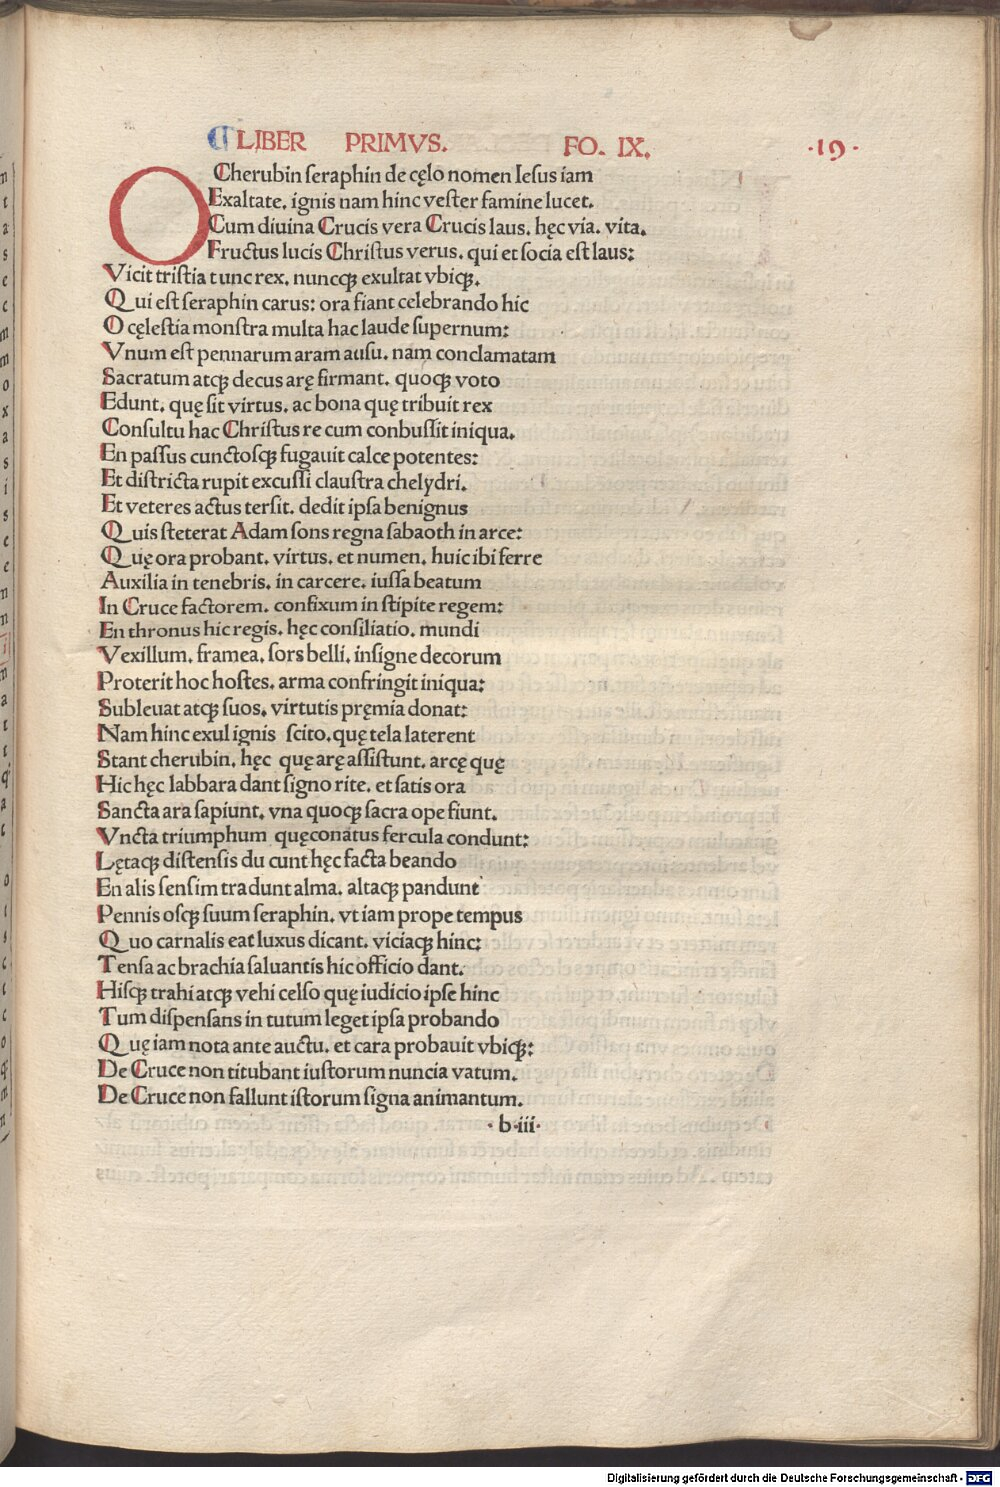 LIBER PRIMVS. FO. IX. ·19·
O Cherubin seraphin de cęlo nomen Iesus iam
Exaltate. ignis nam hinc vester famine lucet.
Cum diuina Crucis vera Crucis laus. hęc via. vita.
Fructus lucis Christus verus. qui et socia est laus:
Vicit tristia tunc rex. nuncqꝫ exultat vbiqꝫ.
Qui est seraphin carus: ora fiant celebrando hic
O cęlestia monstra multa hac laude supernum:
Vnum est pennarum aram ausu. nam conclamatam
Sacratum atqꝫ decus arę firmant. quoqꝫ voto
Edunt. quę sit virtus. ac bona quę tribuit rex
Consultu hac Christus re cum conbussit iniqua.
En passus cunctosqꝫ fugauit calce potentes:
Et districta rupit excussi claustra chelydri.
Et veteres actus tersit. dedit ipsa benignus
Quis steterat Adam sons regna sabaoth in arce:
Quę ora probant. virtus. et numen. huic ibi ferre
Auxilia in tenebris. in carcere. iussa beatum
In Cruce factorem. confixum in stipite regem:
En thronus hic regis. hęc consiliatio. mundi
Vexillum. framea. sors belli. insigne decorum
Proterit hoc hostes. arma confringit iniqua:
Subleuat atqꝫ suos. virtutis pręmia donat:
Nam hinc exul ignis scito. quę tela laterent
Stant cherubin. hęc quę arę assistunt. arcę quę
Hic hęc labbara dant signo rite. et satis ora
Sancta ara sapiunt. vna quoqꝫ sacra ope fiunt.
Vncta triumphum quęconatus fercula condunt:
Lętaqꝫ distensis du cunt hęc facta beando
En alis sensim tradunt alma. altaqꝫ pandunt
Pennis osqꝫ suum seraphin. vt iam prope tempus
Quo carnalis eat luxus dicant. viciaqꝫ hinc:
Tensa ac brachia saluantis hic officio dant.
Hisqꝫ trahi atqꝫ vehi celso quę iudicio ipse hinc
Tum dispensans in tutum leget ipsa probando
Quę iam nota ante auctu. et cara probauit vbiqꝫ:
De Cruce non titubant iustorum nuncia vatum.
De Cruce non fallunt istorum signa animantum.
·b·iii·
Digitalisierung gefördert durch die Deutsche Forschungsgemeinschaft - DFG